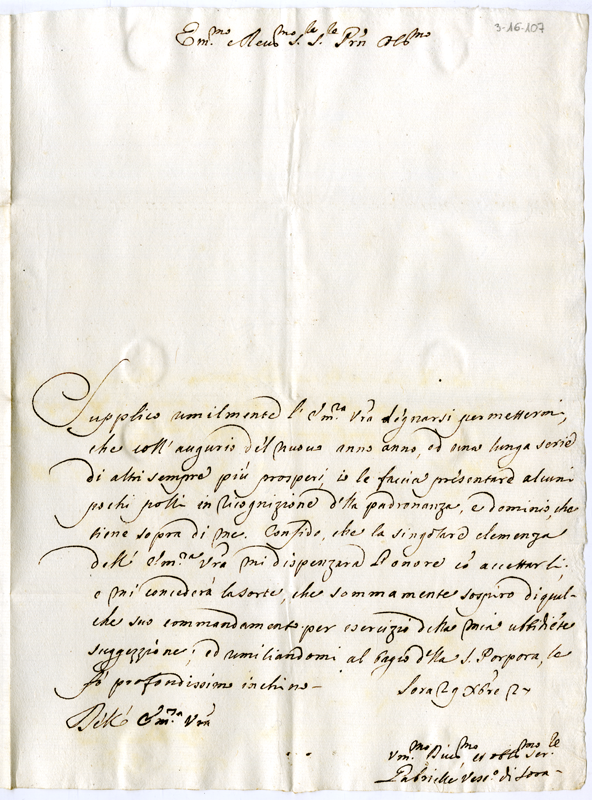 3-16-107
Em.mo e Reu.mo S.re S.re Prn Col.mo
Supplico umilmente l'Em.za Vrã degnarsi permettermi,
che coll'augurio del nuovo anno anno, ed una lunga serie
di altri sempre più prosperi, io le faccia presentare alcuni
pochi polli in ricognizione d'lla padronanza, e dominio, che
tiene sopra di me. Confido, che la singolare clemenza
dell' Em.za Vrã mi dispenzarà l'onore co' accettarli
e mi concederà la sorte, che sommamente sospiro di qual-
che suo commandamento per esercizio della mia ubbid.te
suggezzione; ed umiliandomi al bagio d'lla S. Porpora, le
fò profondissimo inchino-
Sora 29 Xbre 27
Dell' Em.za Vrã
Um.mo Diu.mo, et obb.mo Ser.re
Gabrielle Vesc.o di Sora-